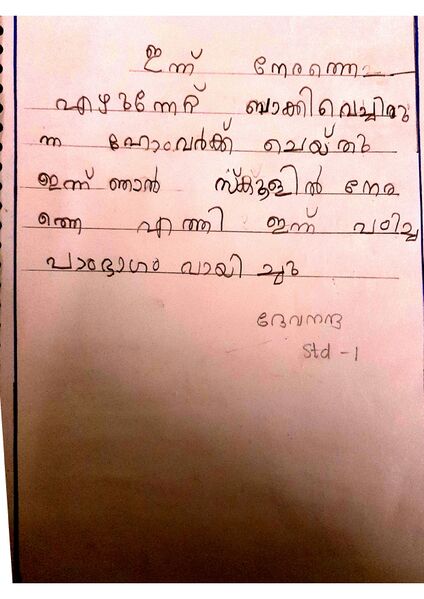 ഇന്ന് നേരത്തെ
എഴുന്നേറ്റ് ബാക്കിവെച്ചിരു
ന്ന ഹോംവർക്ക് ചെയ്തു
ഇന്ന് ഞാൻ സ്കൂളിൽ നേര
ത്തെ എത്തി ഇന്ന് പഠിച്ച
പാഠഭാഗം വായി ച്ചു
ദേവനന്ദ
std - 1